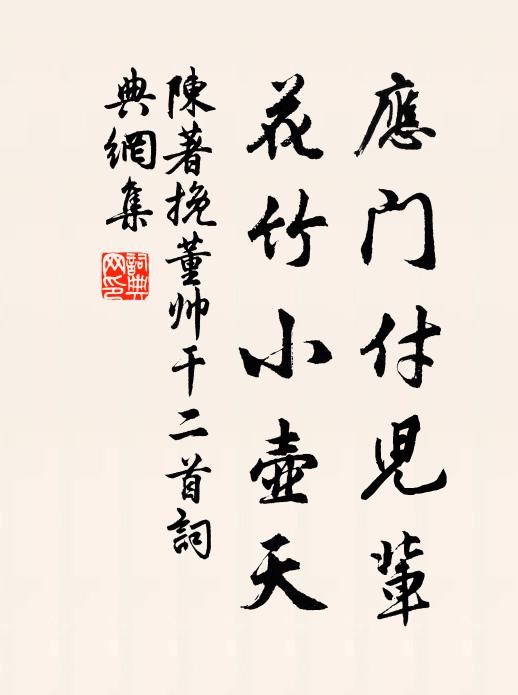 應門付兒輩
花竹小壺天
陳著挽董帅干二首詞
典網集
詞典網印